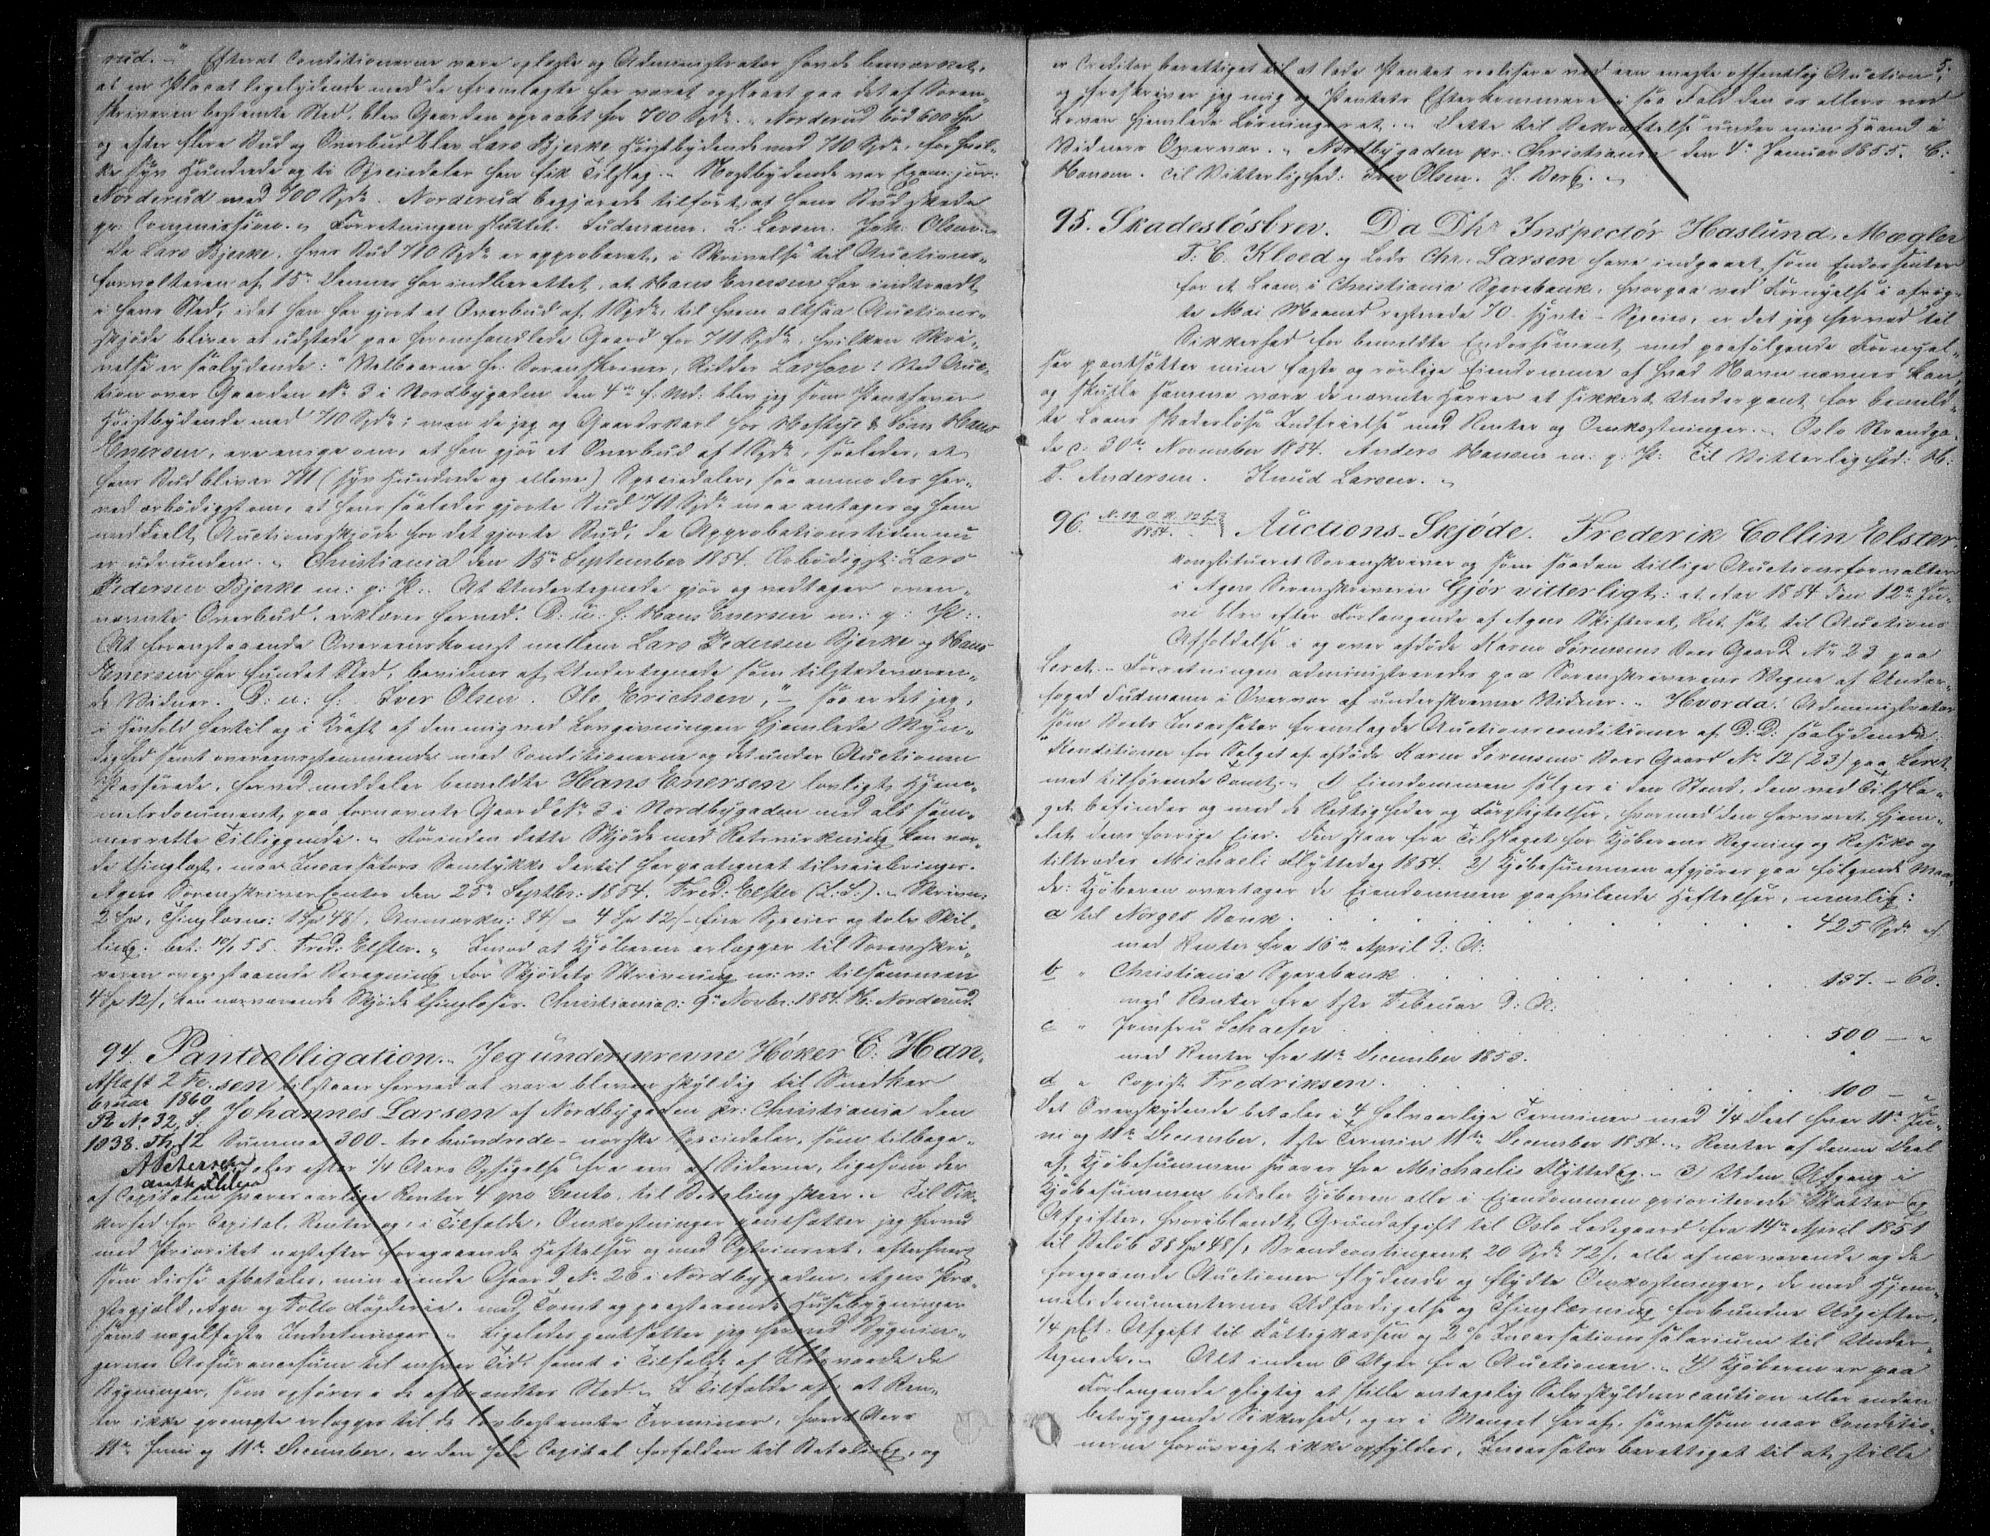 rud. " Efterat Conditionerne vare oplæste og Administrator havde bemærket,
at en Placat ligelydende med de fremlagte har været opslaaet paa det af Soren-
skriveren bestemte Sted, blev Gaarden opraabt for 700 Spd. Norderud bød 600 Spd
og efter flere Bud og Overbud blev Lars Bjerke høistbydende med 710 Spd., for hvil-
ke syv Hundrede og ti Speciedaler han fik Tilslag. Næstbydende var Exam. jur:
Norderud med 700 Spd. Norderud begjærede tilført, at hans Bud skede
pr: Commission. Forretningen sluttet. Tudemann. L: Larsen. Joh: Olsen.
Da Lars Bjerke, hvis Bud 710 Spd. er approberet, i Skrivelse til Auctions-
forvalteren af 15de Dennes har indberettet, at Hans Enersen har indtraadt
i hans Sted, idet han har gjort et Overbud af 1 Spd., til hvem altsaa Auctions-
skjøde bliver at udstede paa foromhandlede Gaard for 711 Spd., hvilken Skri-
velse er saalydende: "Velbaarne Hr. Sorenskriver, Ridder Lasson! Ved Auc-
tion over Gaarden No 3 i Nordbygaden den 4de f. Md: blev jeg som Panthaver
Høistbydende med 710 Spd: men da jeg og Gaardskarl hos Heftye & Søn Hans
Enersen, ere enige om, at han gjør et Overbud af 1 Spd., saaledes, at
hans Bud bliver 711 (syv Hundrede og elleve) Speciedaler, saa anmodes her-
ved ærbødigst om, at hans saaledes gjorte Bud 711 Spd. maa antages og ham
meddeelt Auctionsskjøde for det gjorte Bud, da Approbationstiden nu
er udrunden. Christiania den 15de September 1854. Ærbødigst: Lars
Pedersen Bjerke m: p: P: At Undertegnede gjør og vedtager oven-
nævnte Overbud, erklæres herved. D: u: s: Hans Enersen m: p: P:
At foranstaaende Overeenskomst mellem Lars Pedersen Bjerke og Hans
Enersen har fundet Sted, bevidnes af Undertegnede som tilstedeværen-
de Vidner. D: u: s: Iver Olsen. Ole Erichsen," - saa er det jeg,
i Henhold hertil og i Kraft af den mig ved Lovgivningen hjemlede Myn-
dighed samt overeensstemmende med Conditionerne og det under Auctionen
Passerede, herved meddeler bemeldte Hans Enersen lovligt Hjem-
melsdocument, paa fornævnte Gaard No 3 i Nordbygaden med alt sam-
mes rette Tilliggende. Forinden dette Skjøde med Retsvirkning kan vor-
de thinglæst, maa Incassators Samtykke dertil her paategnet tilveiebringes.
Agers Sorenskriver Contor den 25de Septbr: 1854. Fred: Elster (L:S:). Skrivn:
2 Sp, Thinglæsn: 1 Sp 48 s, Anmærkn: 84 s = 4 Sp 12 s fire Species og tolv Skil-
ling. bet: 10/1 55. Fred: Elster. Imod at Kjøberen erlægger til Sorenskri-
veren ovenstaaende Beregning for Skjødets Skrivning m: v: tilsammen
4 Sp 12 s, kan nærværende Skjøde thinglæses. Christiania d: 9de Novbr: 1854. H: Norderud.
94. Pantobligation. Jeg underskrevne Høker C: Han-
Aflæst 2 Fe- sen tilstaaer herved at være bleven skyldig til Snedker
bruar 1860
Pb No 32, S. Johannes Larsen af Nordbygaden pr: Christiania den
1038. Th. 12 Summa 300 - trehundrede - norske Speciedaler, som tilbage-
APetersen betales efter 1/4 Aars Opsigelse fra een af Siderne, ligesom der
af Capitalen svares aarlige Renter 4 pro Cento, til Betaling skeer. Til Sik-
kerhed for Capital, Renter og, i Tilfælde, Omkostninger pantsætter jeg herved
med Prioritet næstefter foregaaende Heftelser og med Optrinsret, efterhvert
som disse afbetales, min eiende Gaard No 26 i Nordbygaden, Agers Præ-
stegjæld, Ager og Follo Fogderie, med Tomt og paastaaende Huusebygninger
samt nagelfaste Indretninger. Ligeledes pantsætter jeg herved Bygnin-
gernes Assurancesum til enhver Tid, samt i Tilfælde af Ildsvaade de
Bygninger, som opføres i de afbrændtes Sted. I Tilfælde af, at Ren-
ter ikke prompte erlægges til de lovbestemte Terminer, hvert Aars
11te Juni og 11te December, er den hele Capital forfalden til Betaling, og
5.
er Creditor berettiget til at lade Pantet realisere ved een eneste offentlig Auction,
og fraskriver jeg mig og Pantets Efterkommere i saa Fald den os ellers ved
Loven hjemlede Løsningsret. Dette til Bekræftelse under min Haand i
Vidners Overvær. Nordbygaden pr: Christiania den 4de Januar 1855. C:
Hansen. Til Vitterlighed: Iver Olsen. J. Berg.
95. Skadesløsbrev. Da DHr. Inspectør Haslund, Mægler
T: C. Kloed og Lods Chr. Larsen have indgaaet som Endossenter
for et Laan i Christiania Sparebank, hvorpaa ved Fornyelse i afvig-
te Mai Maaned resterede 70. sytti - Species, er det jeg herved til
Sikkerhed for bemeldte Endossement med paafølgende Fornyel-
ser pantsætter mine faste og rørlige Eiendomme af hvad Navn nævnes kan,
og skulle samme være de nævnte Herrer et sikkert Underpant for bemeld-
te Laans skadesløse Indfrielse med Renter og Omkostninger. Oslo Strandga-
de d: 30te November 1854. Anders Hansen m: p: P: Til Vitterlighed: H:
T. Andersen. Knud Larsen.
96. N. 19. A. R. 12/6
1854. Auctions-Skjøde. Frederik Collin Elster
konstitueret Sorenskriver og som saadan tillige Auctionsforvalter
i Agers Sorenskriverie Gjør vitterligt: at Aar 1854 den 12te Ju-
ni blev efter Forlangende af Agers Skifteret, Ret sat til Auctions
Afholdelse i og over afdøde Karen Sørensens Boes Gaard No 23 paa
Leret. Forretningen administreredes paa Sorenskriverens Vegne af Under-
foged Tudemann i Overvær af underskrevne Vidner. Hvorda: Administrator
som Boets Incassator fremlagde Auctionsconditioner af D: D: saalydende:
"Konditioner for Salget af afdøde Karen Sørensens Boes Gaard No 12 (23) paa Leret
med tilhørende Tomt. 1) Eiendommen sælges i den Stand, den ved Tilsla-
get befindes og med de Rettigheder og Forpligtelser, hvormed den har været hjem-
let dens forrige Eier. Den staar fra Tilslaget for Kjøberens Regning og Risiko og
tiltrædes Michaeli Flyttedag 1854. 2) Kjøbesummen afgjøres paa følgende Maa-
de: Kjøberen overtager de Eiendommen paahvilende Heftelser, nemlig:
a til Norges Bank . . . . . . 425 Spd. "
med Renter fra 16de April d: A:
b " Christiania Sparebank . . . . . 137. - 60.
med Renter fra 1ste Februar d: A:
c " Jomfru Schaefer . . . . . 500 - "
med Renter fra 11te December 1853.
d " Copist Fredriksen . . . . . 100 - "
Det Overskydende betales i 4 halvaarlige Terminer med 1/4 Deel hver 11te Ju-
ni og 11te December, 1ste Termin 11te December 1854. Renter af denne Deel
af Kjøbesummen svares fra Michaelis Flyttedag. 3) Uden Afgang i
Kjøbesummen betaler Kjøberen alle i Eiendommen prioriterede Skatter og
Afgifter, hvoriblandt Grundafgift til Oslo Ladegaard fra 14de April 1851
til Beløb 38 Sp 48 s, Brandcontingent 20 Spd. 72 s, alle af nærværende og de
foregaaende Auctioner flydende og flydte Omkostninger, de med Hjem-
melsdocumenternes Udfærdigelse og Thinglæsning forbundne Udgifter,
1/4 pCt. Afgift til Fattigkassen og 2 % Incassationssalarium til Under-
tegnede. Alt inden 6 Uger fra Auctionen. 4) Kjøberen er paa
Forlangende pligtig at stille antagelig Selvskyldnercaution eller anden
betryggende Sikkerhed, og er i Mangel heraf, saavelsom naar Conditio-
nerne forøvrigt ikke opfyldes, Incassator berettiget til at stille